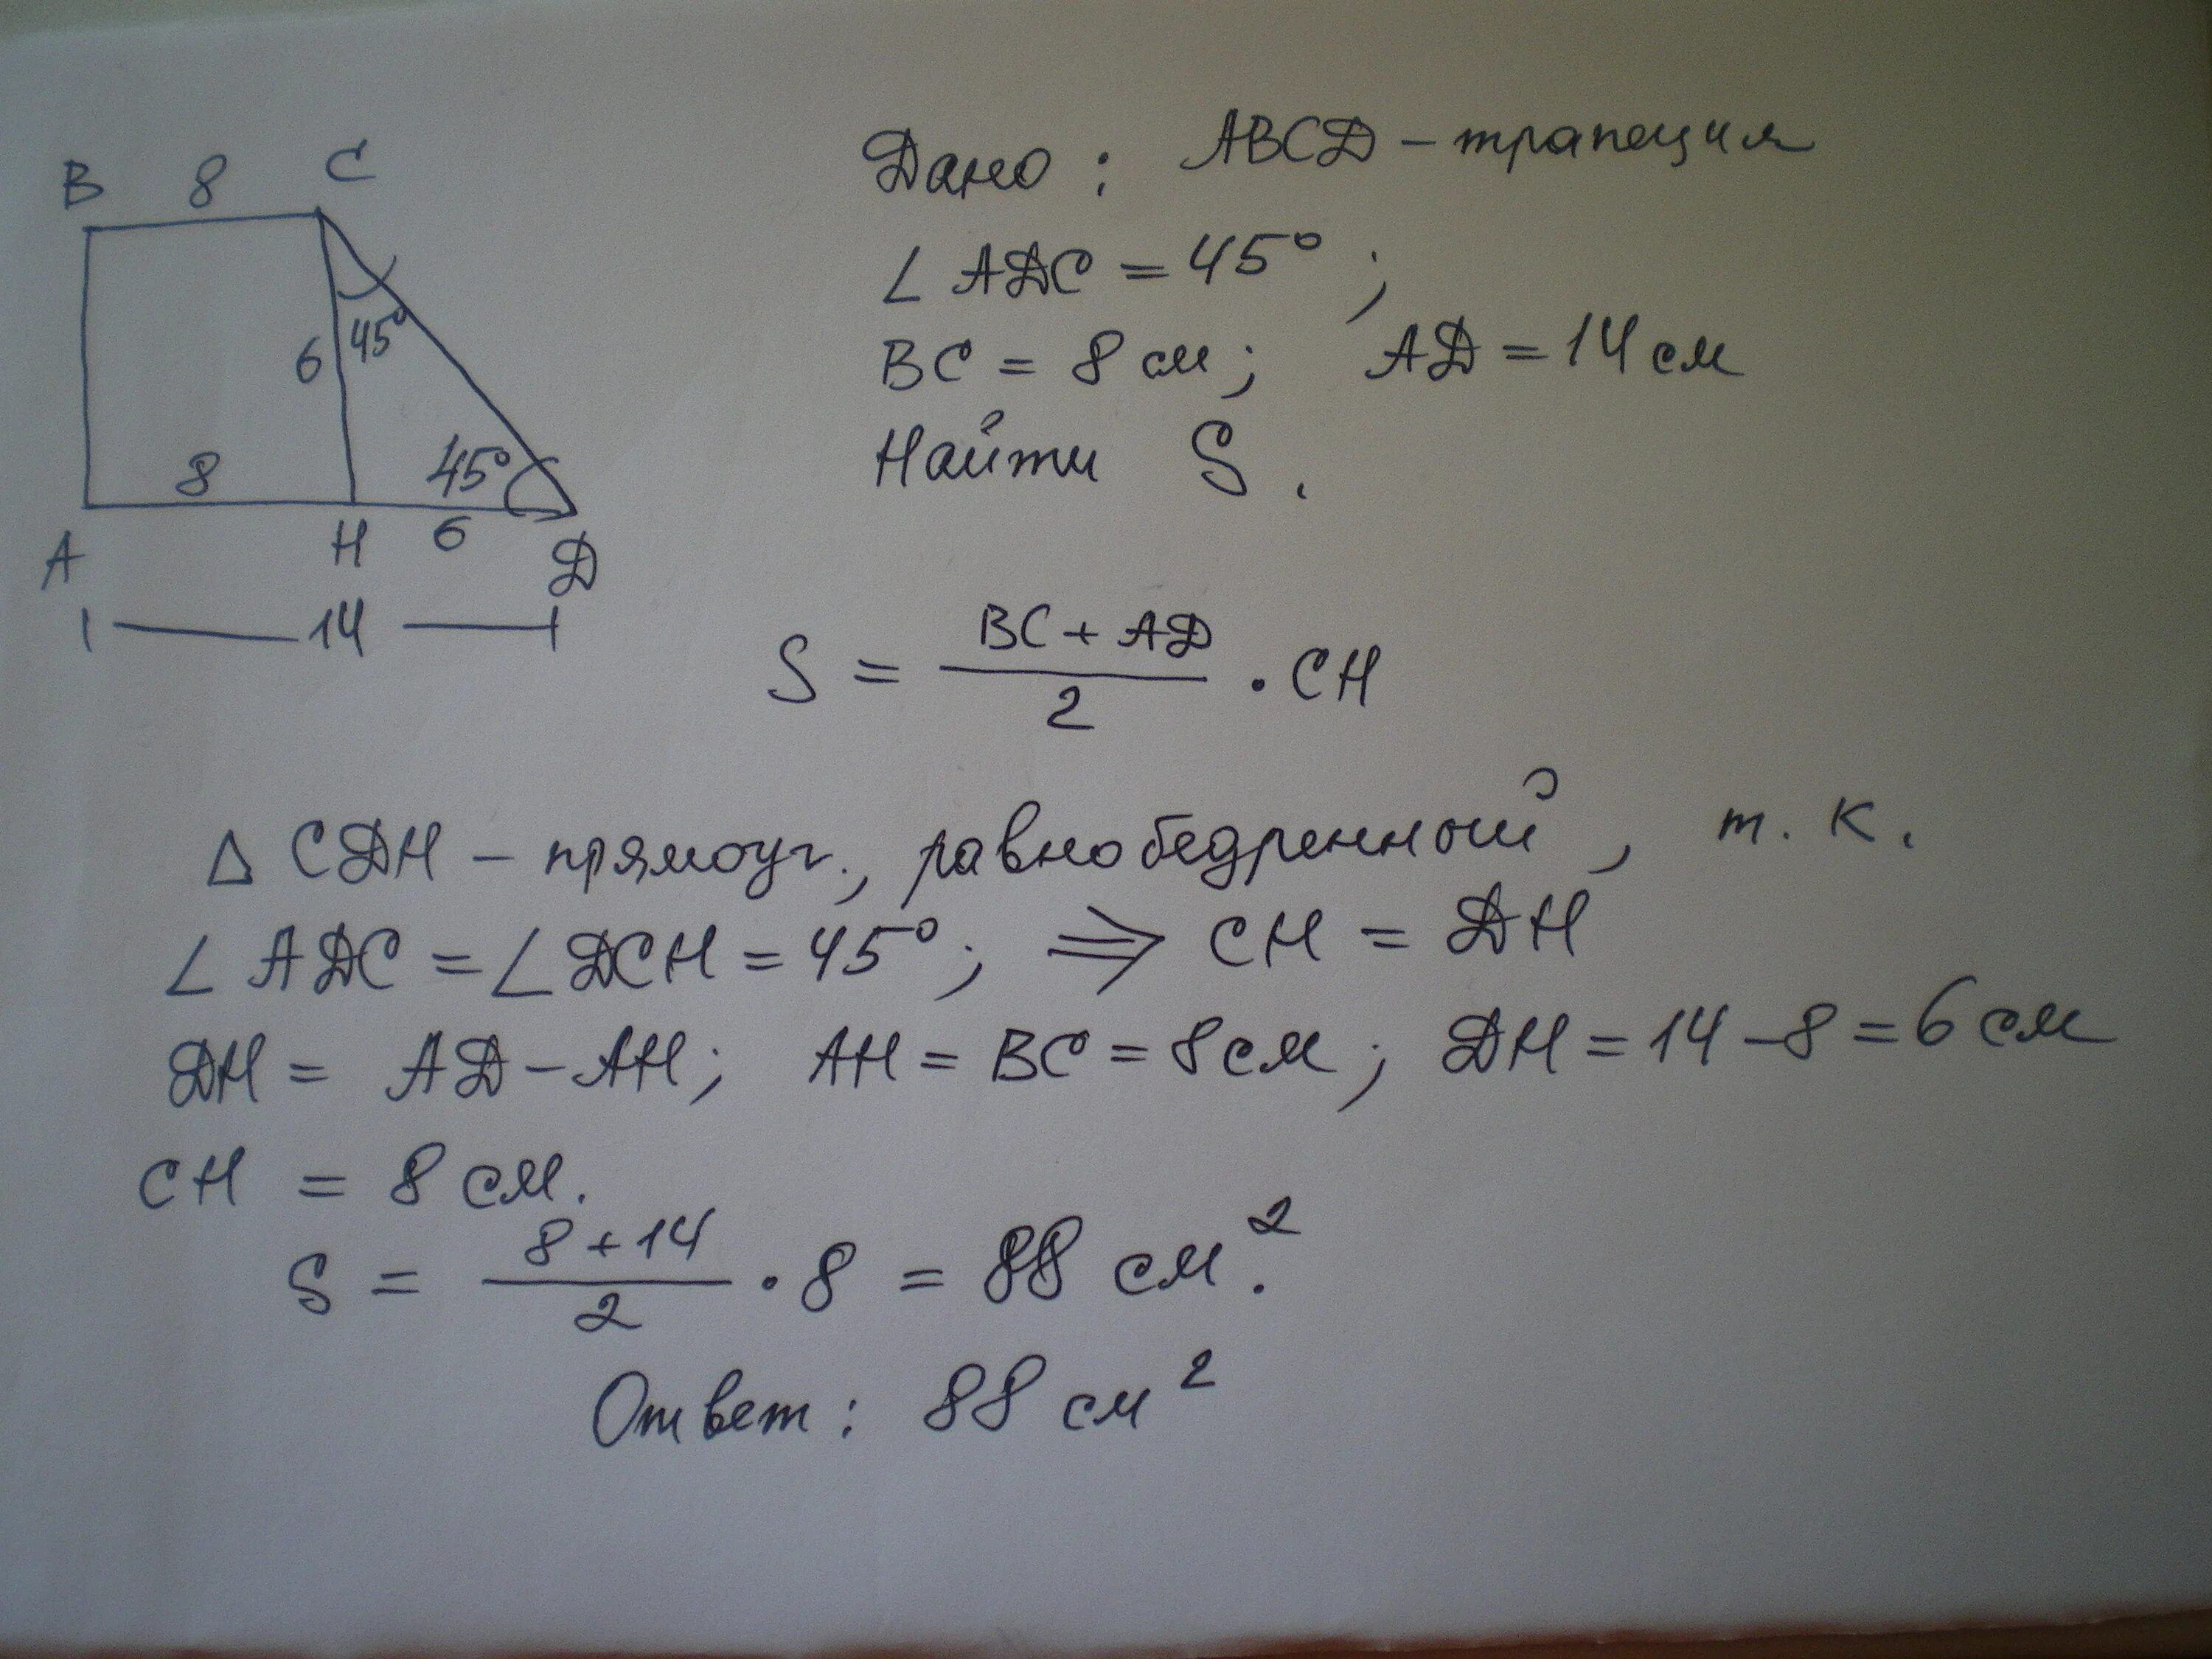 B 8 C
6 45°
8 45°
A H 6 D
14
Дано: ABCD - трапеция
∠ ADC = 45°;
BC = 8 см; AD = 14 см
Найти S.
S = (BC + AD)/2 · CH
Δ CDH - прямоуг., равнобедренный, т. к.
∠ ADC = ∠ DCH = 45°; ⇒ CH = DH
DH = AD - AH; AH = BC = 8 см; DH = 14 - 8 = 6 см
CH = 8 см.
S = (8 + 14)/2 · 8 = 88 см².
Ответ: 88 см²